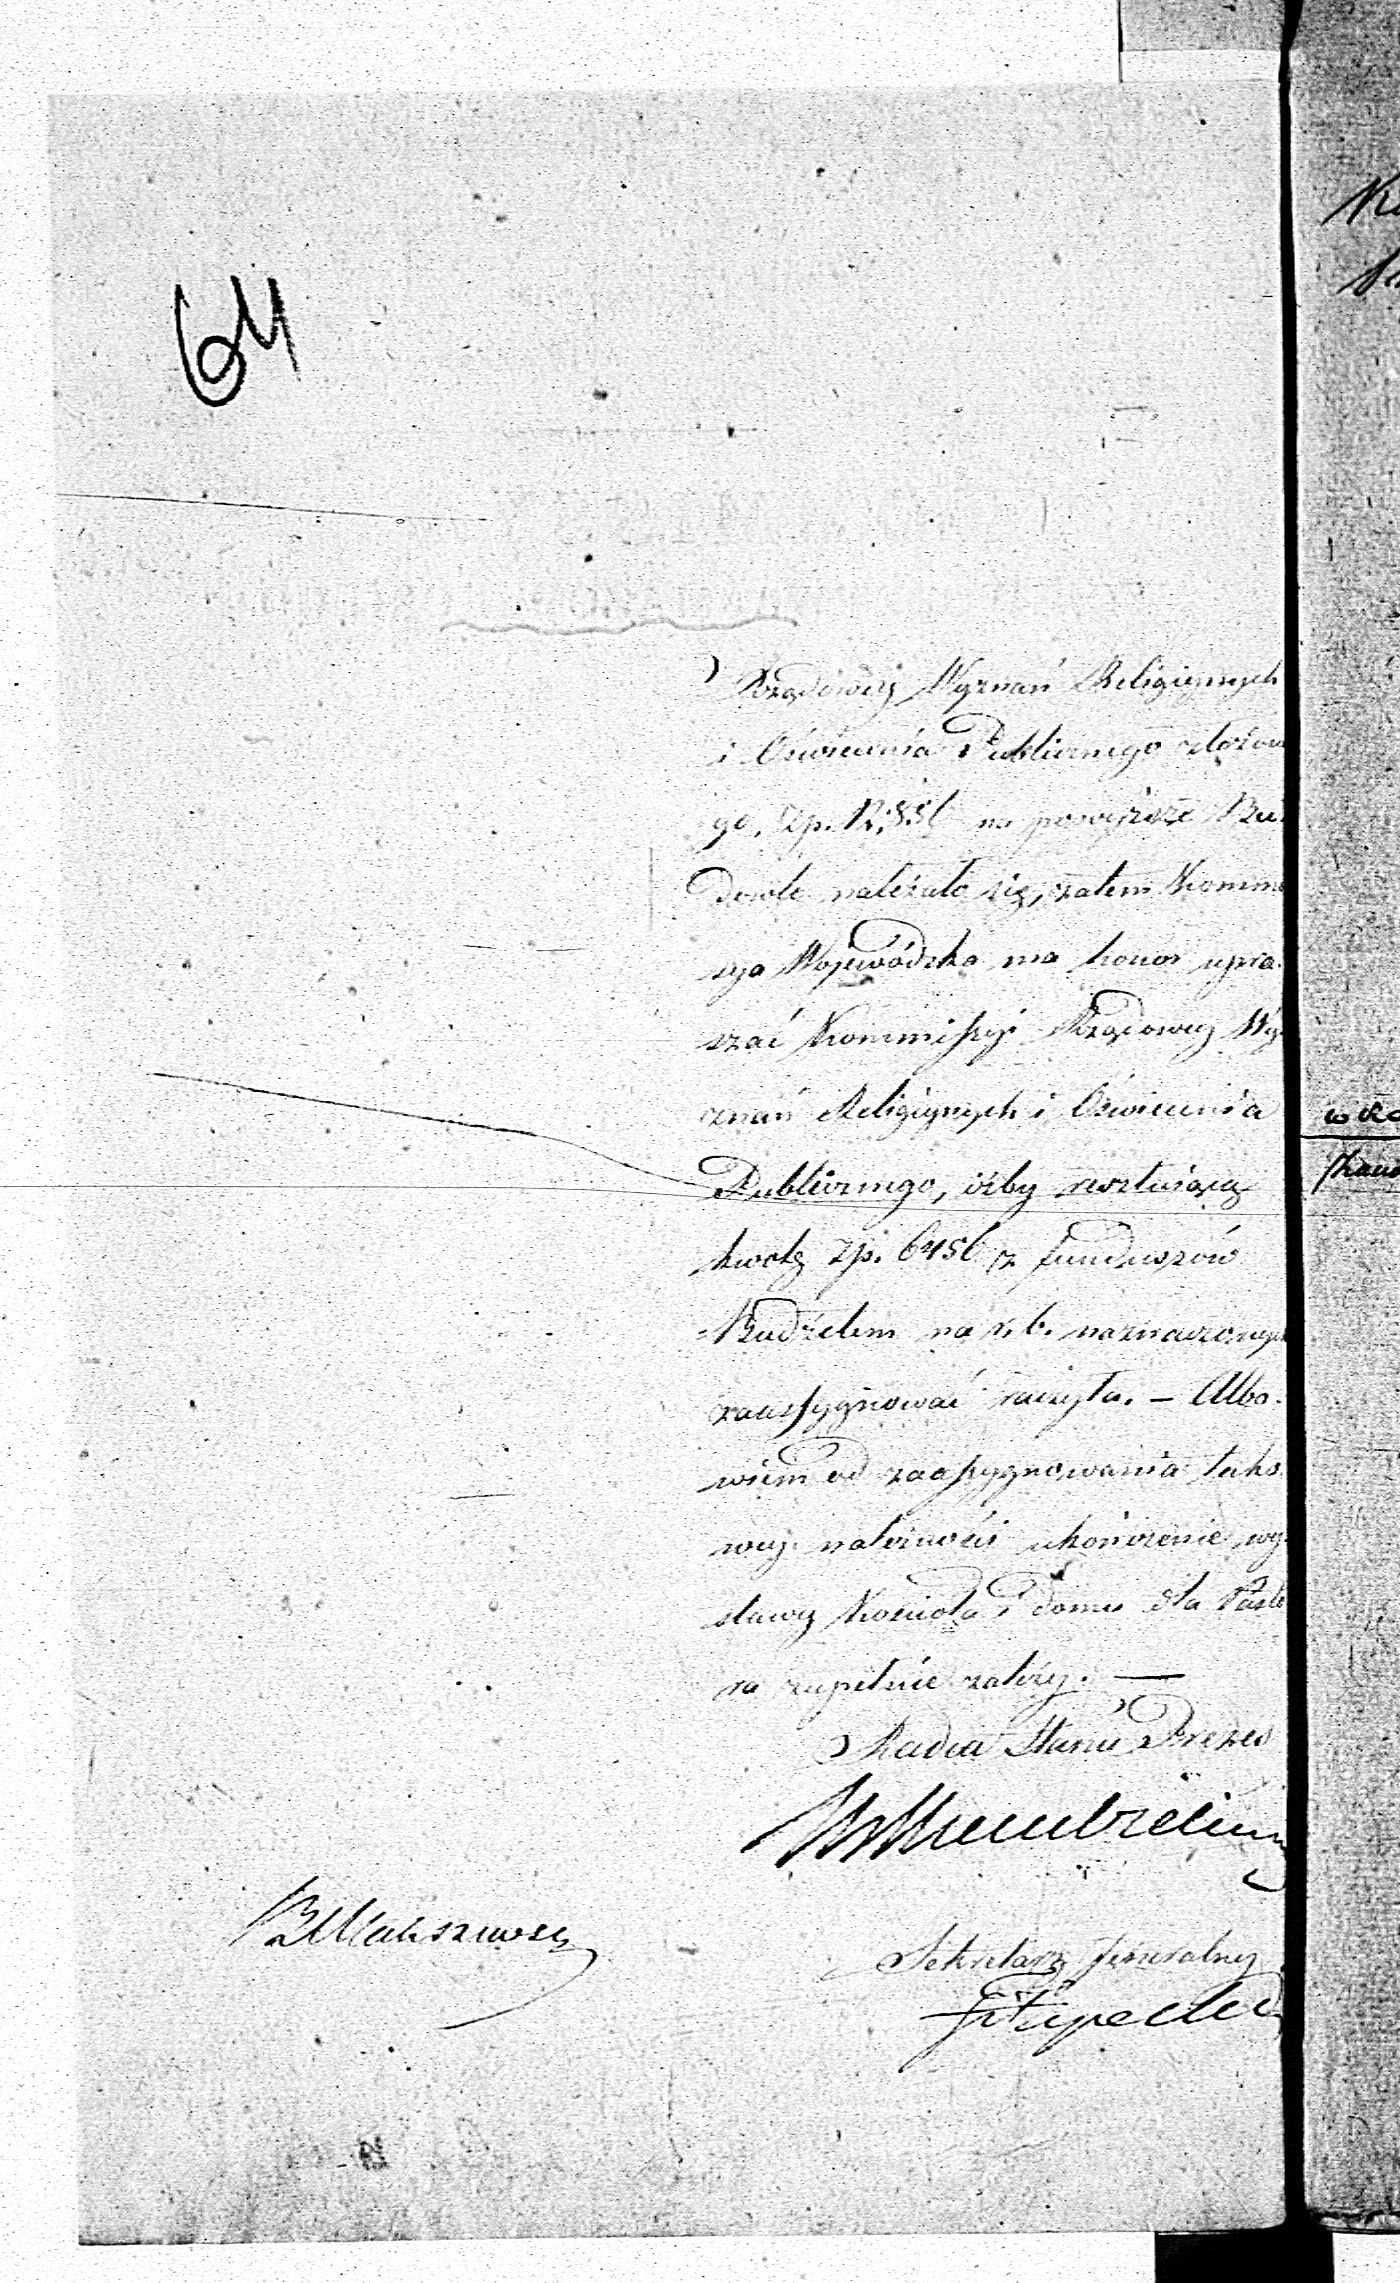 64
Rządowey Wyznań Religiynych
i Oświecenia Publicznego złożone
go, Zp. 12,856 na powyższe Bu
dowle należało się, zatem Kommi
sya Wojewódzka ma honor upra
szać Kommissyi Rządowey Wy
znań Religiynych i Oświecenia
Publicznego, iżby resztuiącą
kwotę Zp. 6456 z funduszów
Budżetem na r. b. naznaczonych
zaassygnować raczyła. — Albo
wiem od zaassygnowania tako
wey należności ukończenie wy
stawy Kościoła i domu dla Pasto
ra zupełnie zależy. —
Radca Stanu Prezes
Sekretarz Jeneralny